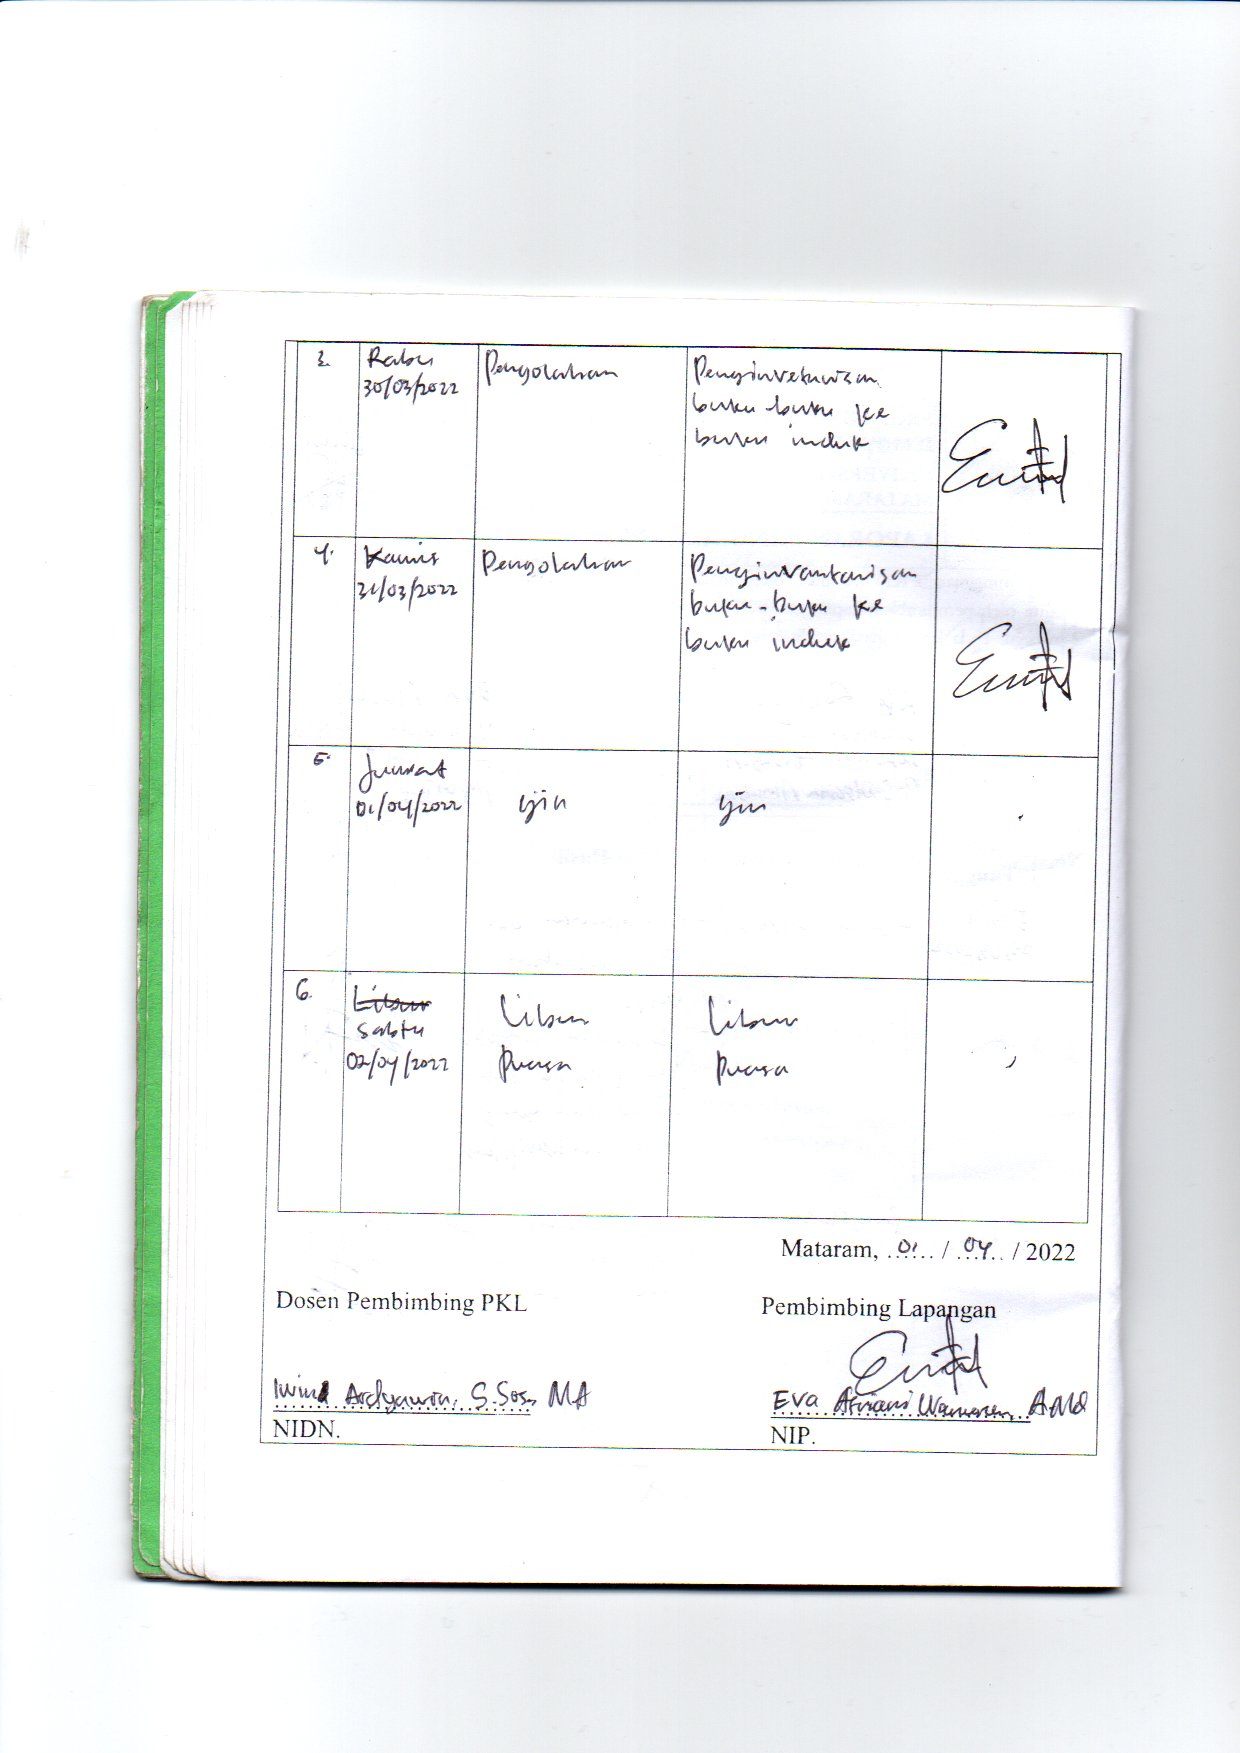 3.
Rabu
30/03/2022
Pengolahan
Penginvetarisan
buku-buku ke
buku induk
4.
Kamis
31/03/2022
Pengolahan
Penginvantarisan
buku-buku ke
buku induk
5.
Jumat
01/04/2022
ijin
ijin
6.
Libur
Sabtu
02/04/2022
Libur
Puasa
Libur
Puasa
Mataram, 01 / 04 / 2022
Dosen Pembimbing PKL
Pembimbing Lapangan
Ardyawin, S.Sos, MA
Eva Afriani A.Md
NIDN.
NIP.